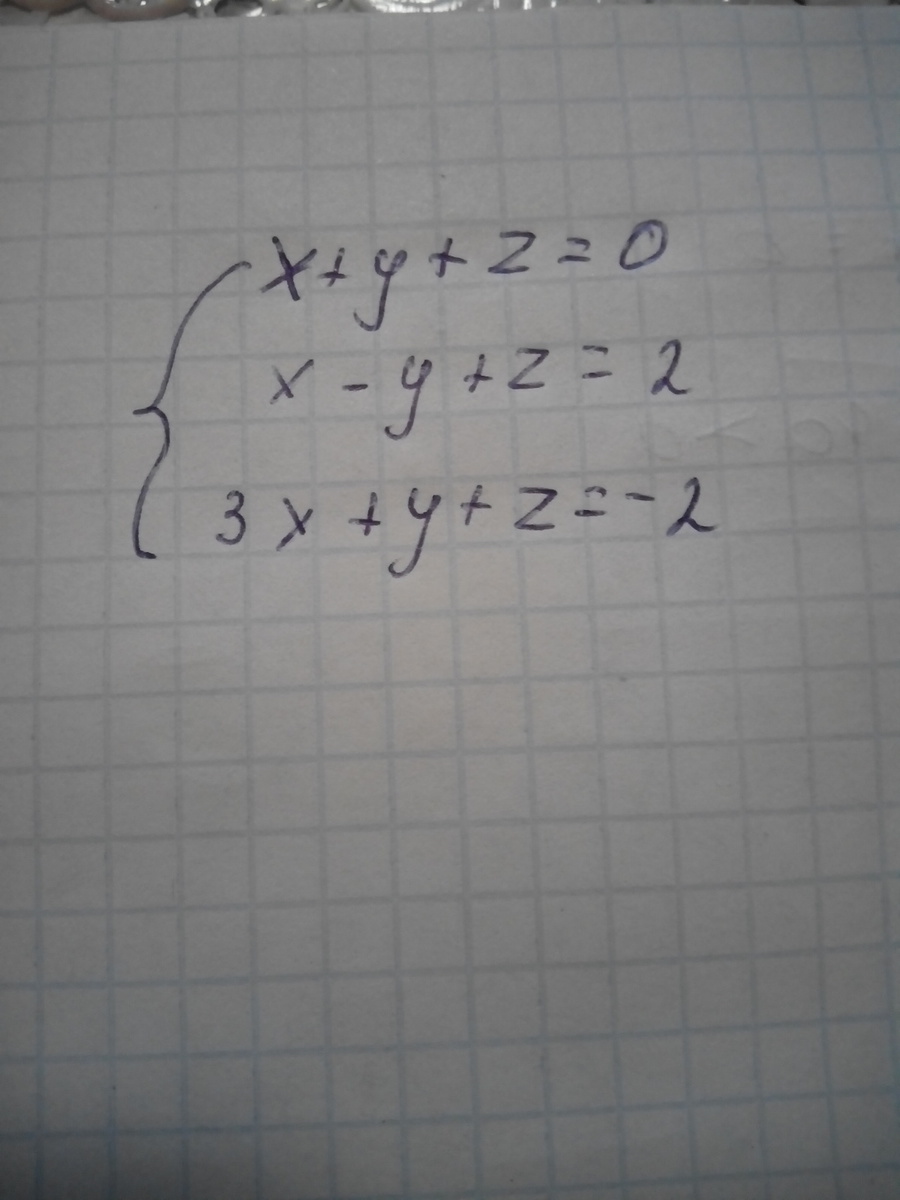 x + y + z = 0
x - y + z = 2
3x + y + z = -2